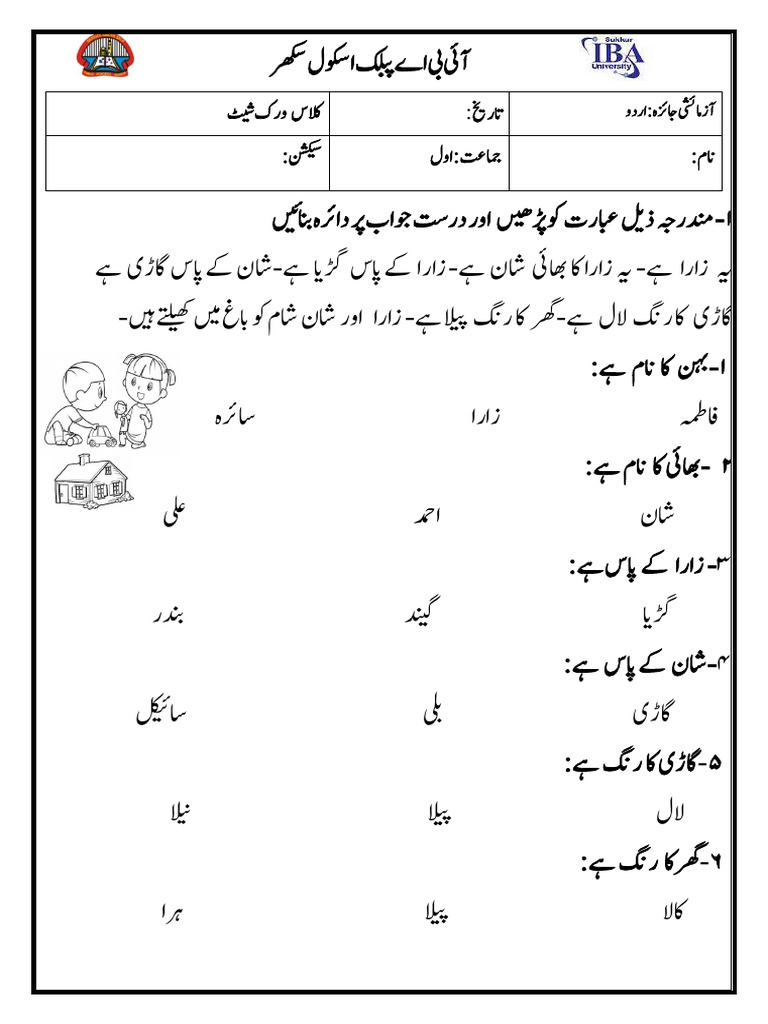 آئی بی اے پبلک اسکول سکھر
Sukkur
IBA
University
آزمائشی جائزہ: اردو تاریخ: کلاس ورک شیٹ
نام: جماعت: اول سیکشن:
۱- مندرجہ ذیل عبارت کو پڑھیں اور درست جواب پر دائرہ بنائیں
یہ زارا ہے- یہ زارا کا بھائی شان ہے- زارا کے پاس گڑیا ہے- شان کے پاس گاڑی ہے
گاڑی کا رنگ لال ہے- گھر کا رنگ پیلا ہے- زارا اور شان شام کو باغ میں کھیلتے ہیں-
۱- بہن کا نام ہے:
فاطمہ زارا سائرہ
۲ - بھائی کا نام ہے:
شان احمد علی
۳- زارا کے پاس ہے:
گڑیا گیند بندر
۴- شان کے پاس ہے:
گاڑی بلی سائیکل
۵- گاڑی کا رنگ ہے:
لال پیلا نیلا
۶- گھر کا رنگ ہے:
کالا پیلا ہرا